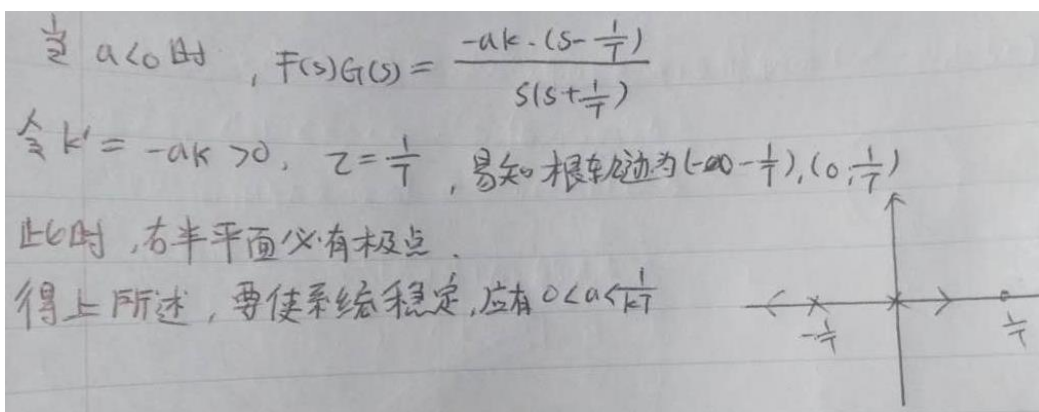 当 a<0 时 , F(s)G(s) = \frac{-ak·(s-\frac{1}{T})}{s(s+\frac{1}{T})}
令 k' = -ak >0, z = \frac{1}{T} , 易知 根轨迹为(-∞-\frac{1}{T}),(0,\frac{1}{T})
此时 ,右半平面必有极点.
得上所述 , 要使系统稳定,应有 0<a<\frac{1}{kT}
-\frac{1}{T} \frac{1}{T}